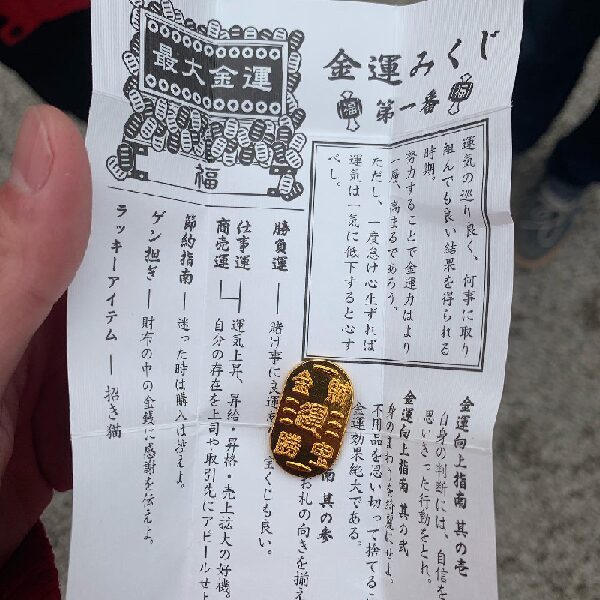 最大金運
福
金運みくじ
第一番
運気の巡り良く、何事に取り
組んでも良い結果を得られる
時期。
努力することで金運力はより
一層、高まるであろう。
ただし、一度怠け心生ずれば
運気は一気に低下すると心す
べし。
金運向上指南 其の壱
自身の判断には、自信を
思いきった行動をとれ。
金運向上指南 其の弐
身のまわりを綺麗にせよ。
不用品を思い切って捨てるこ
金運効果絶大である。
南 其の参
お札の向きを揃え
勝負運 ― 賭け事に良運
宝くじも良い。
仕事運
商売運
運気上昇、昇給・昇格・売上拡大の好機。
自分の存在を上司や取引先にアピールせよ
節約指南 ― 迷った時は購入は控えよ。
ゲン担ぎ ― 財布の中の金銭に感謝を伝えよ。
ラッキーアイテム ― 招き猫